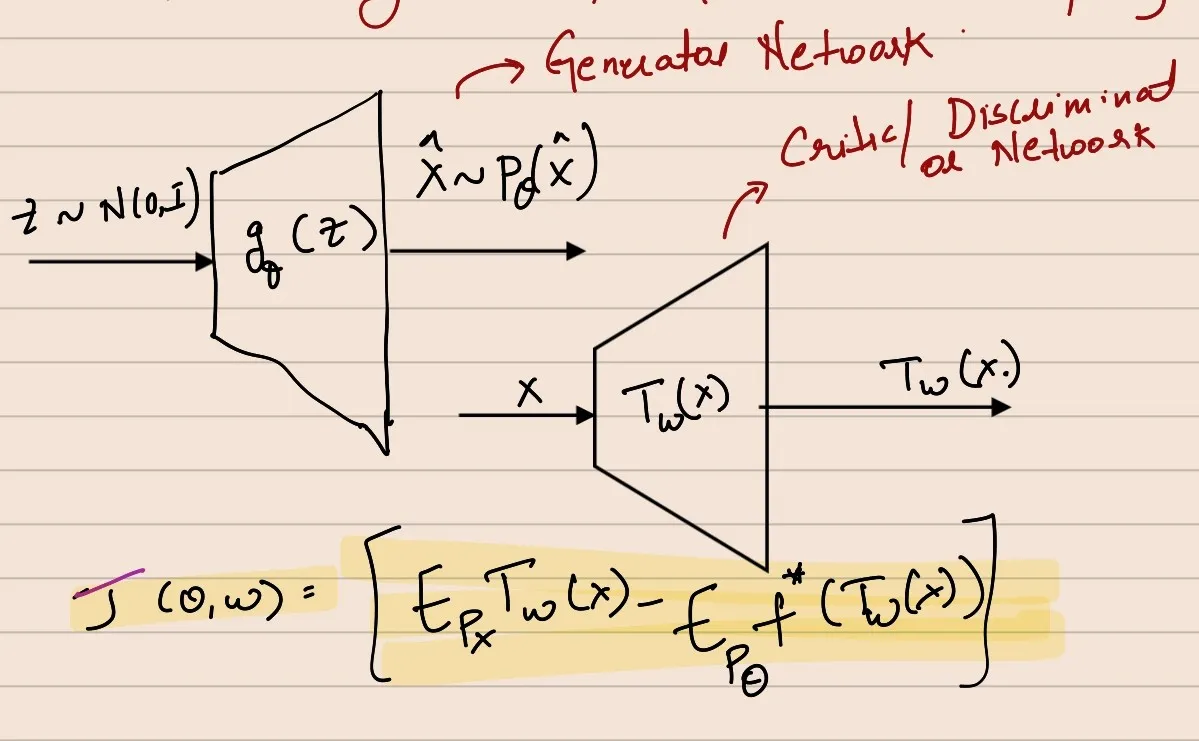 Generator Network
Critic/ Discriminat
or Network
z ~ N(0,I)
x̂ ~ Pθ(x̂)
gθ(z)
x
Tw(x)
Tw(x.)
J (θ,w) = [ E_Px Tw(x) - E_Pθ f*(Tw(x)) ]